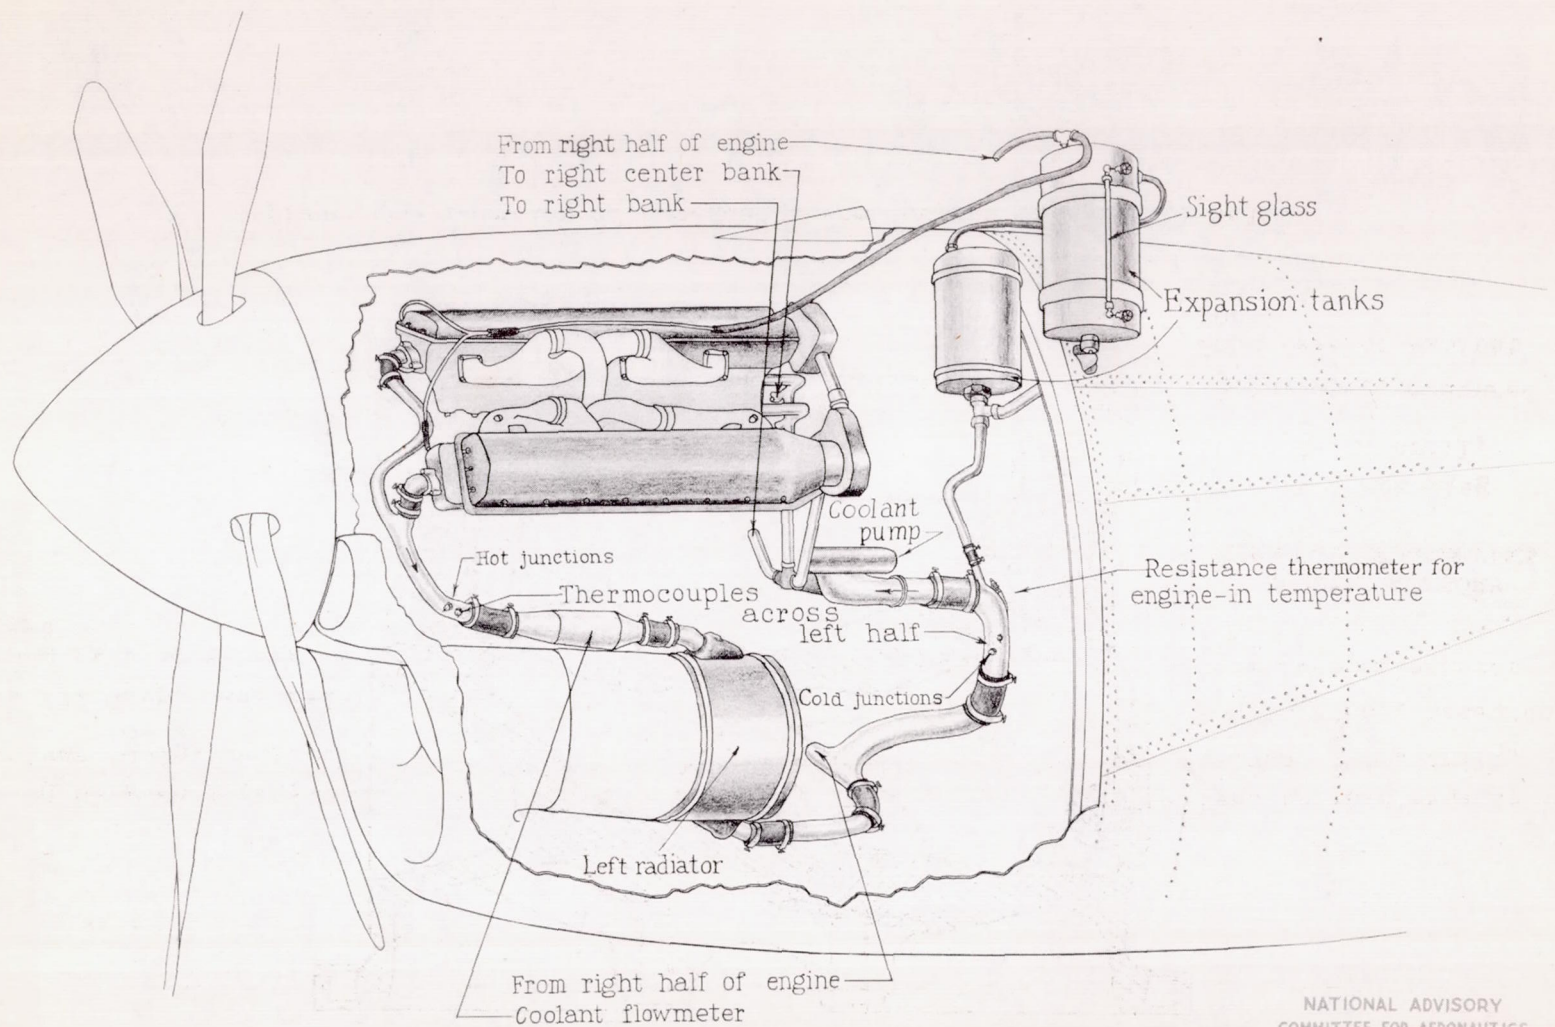 From right half of engine
To right center bank
To right bank
Sight glass
Expansion tanks
Coolant
pump
Hot junctions
Thermocouples
across
left half
Resistance thermometer for
engine-in temperature
Cold junctions
Left radiator
From right half of engine
Coolant flowmeter
NATIONAL ADVISORY
COMMITTEE FOR AERONAUTICS